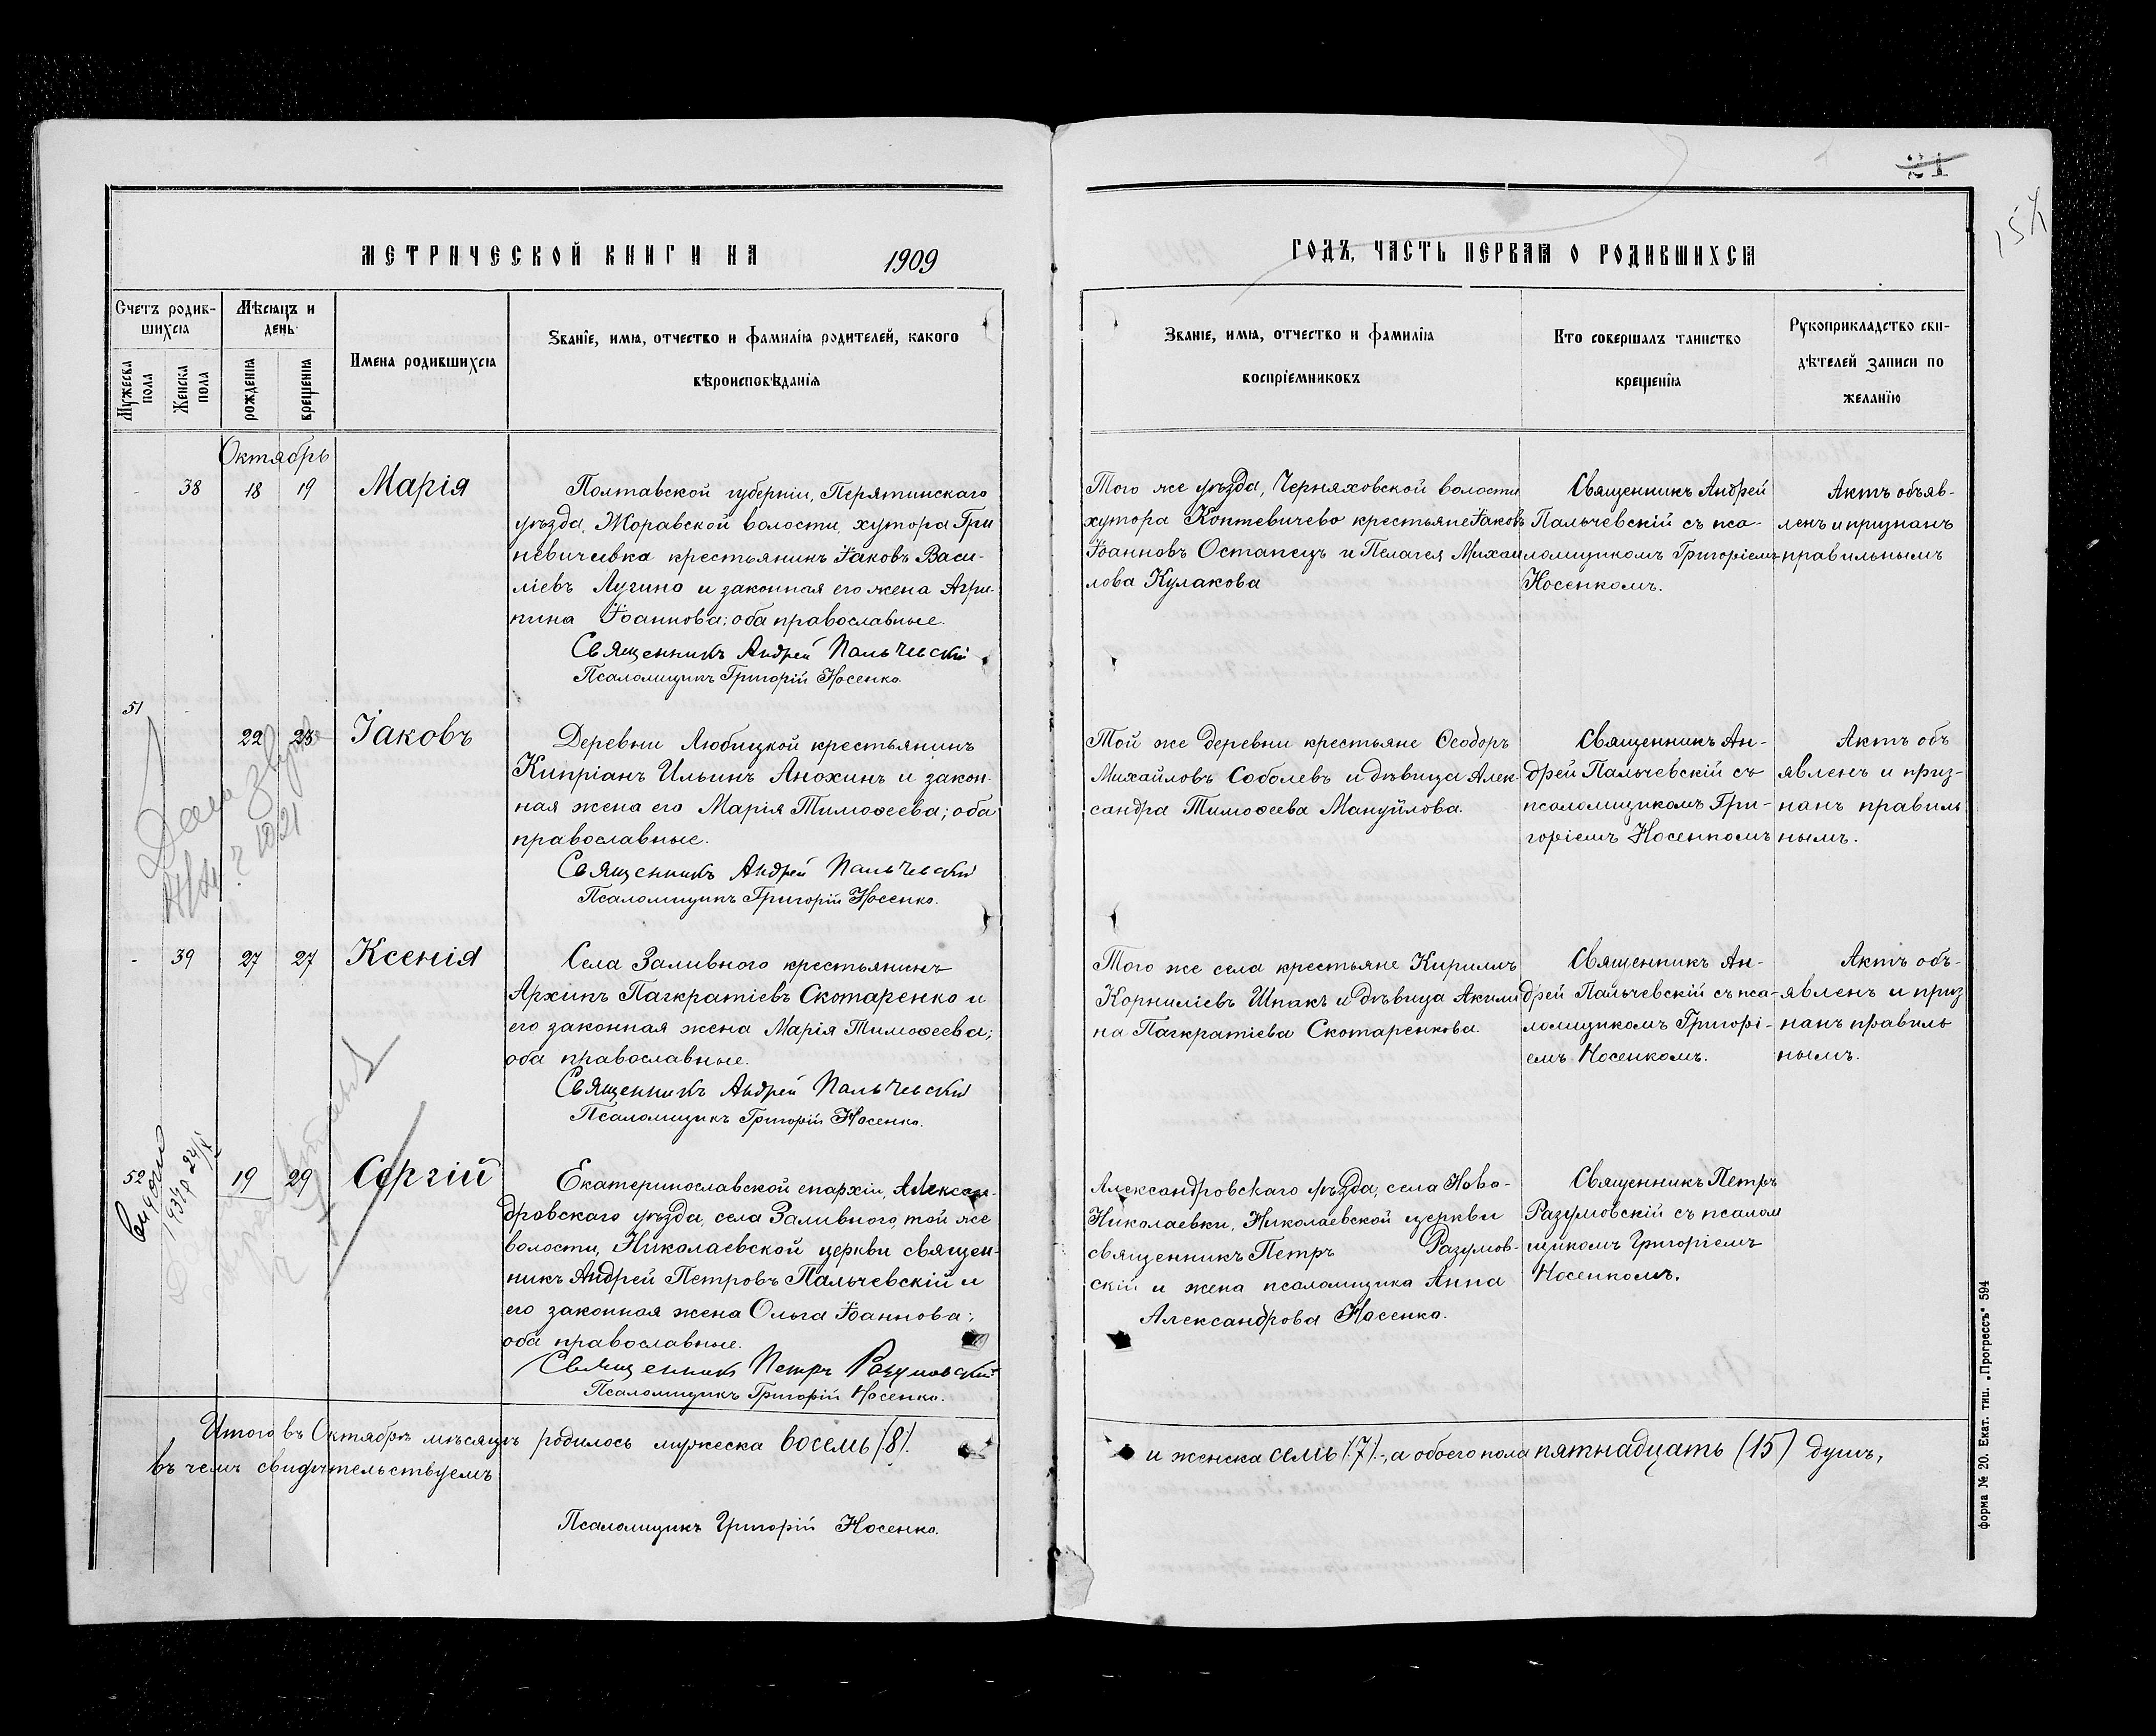 21
15
МЕТРИЧЕСКОЙ КНИГИ НА 1909
ГОДЪ, ЧАСТЬ ПЕРВАЯ О РОДИВШИХСЯ
Счетъ родив-
шихся
Мужеска пола
Женска пола
Мѣсяцъ и
день
рожденія
крещенія
Имена родившихся
Званіе, имя, отчество и фамилія родителей, какого
вѣроисповѣданія
Званіе, имя, отчество и фамилія
воспріемниковъ
Кто совершалъ таинство
крещенія
Рукоприкладство сви-
дѣтелей записи по
желанію
Октябрь
- 38 18 19 Марія
Полтавской губерніи, Перятинскаго
уѣзда, Жоравской волости, хутора Гри
невичивка крестьянинъ Іаковъ Васи-
ліевъ Лугино и законная его жена Агри-
пина Іоаннова; оба православные.
Священникъ Андрей Пальчевскій
Псаломщикъ Григорій Носенко.
Того же уѣзда, Черняховской волости
хутора Коптевичево крестьяне Іаковъ
Іоанновъ Остапецъ и Пелагея Михаи
лова Кулакова
Священникъ Андрей
Пальчевскій съ пса-
ломщикомъ Григоріемъ
Носенкомъ.
Актъ объяв-
ленъ и признанъ
правильнымъ
51 - 22 23 Іаковъ
Деревни Любицкой крестьянинъ
Кипріанъ Ильинъ Анохинъ и закон-
ная жена его Марія Тимоѳеева; оба
православные.
Священникъ Андрей Пальчевскій
Псаломщикъ Григорій Носенко.
Той же деревни крестьяне Ѳеодоръ
Михайловъ Соболевъ и дѣвица Алек-
сандра Тимоѳеева Мануйлова.
Священникъ Ан-
дрей Пальчевскій съ
псаломщикомъ Гри-
горіемъ Носенкомъ
Актъ объ
явленъ и приз-
нанъ правиль
нымъ.
- 39 27 27 Ксенія
Села Заливного крестьянинъ
Архипъ Пагкратіевъ Скотаренко и
его законная жена Марія Тимоѳеева;
оба православные.
Священникъ Андрей Пальчевскій
Псаломщикъ Григорій Носенко.
Того же села крестьяне Кириллъ
Корниліевъ Шпакъ и дѣвица Акили
на Пагкратіева Скотаренкова.
Священникъ Ан-
дрей Пальчевскій съ пса-
ломщикомъ Григорі-
емъ Носенкомъ.
Актъ объ-
явленъ и приз
нанъ правиль
нымъ.
52 19 29 Сергій
Екатеринославской епархіи, Алексан-
дровскаго уѣзда, села Заливного, той же
волости, Николаевской церкви священ-
никъ Андрей Петровъ Пальчевскій и
его законная жена Ольга Іоаннова;
оба православные.
Священникъ Петръ Разумовскій
Псаломщикъ Григорій Носенко.
Александровскаго уѣзда, села Ново-
Николаевки, Николаевской церкви
священникъ Петръ Разумов-
скій и жена псаломщика Анна
Александрова Носенко.
Священникъ Петръ
Разумовскій съ псалом
щикомъ Григоріемъ
Носенкомъ.
Итого въ Октябрѣ мѣсяцѣ родилось мужеска восемь (8)
и женска семь (7), а обоего пола пятнадцать (15) душъ,
въ чемъ свидѣтельствуемъ
Псаломщикъ Григорій Носенко.
Форма № 20. Екат. тип. „Прогрессъ" 594